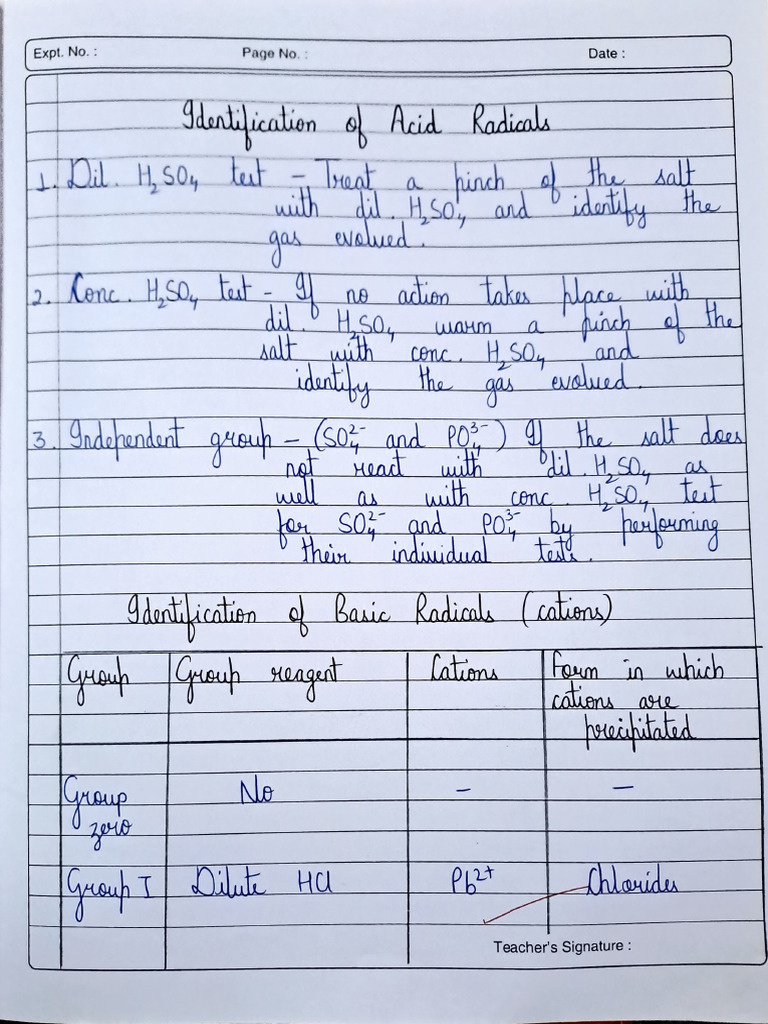 Expt. No. : Page No. : Date :
Identification of Acid Radicals
1. Dil. H₂SO₄ test – Treat a pinch of the salt
with dil. H₂SO₄ and identify the
gas evolved.
2. Conc. H₂SO₄ test – If no action takes place with
dil. H₂SO₄ warm a pinch of the
salt with conc. H₂SO₄ and
identify the gas evolved.
3. Independent group – (SO₄²⁻ and PO₄³⁻) If the salt does
not react with dil. H₂SO₄ as
well as with conc. H₂SO₄ test
for SO₄²⁻ and PO₄³⁻ by performing
their individual tests.
Identification of Basic Radicals (cations)
Group Group reagent Cations Form in which
cations are
precipitated
Group No – –
zero
Group I Dilute HCl Pb²⁺ Chlorides
Teacher's Signature :